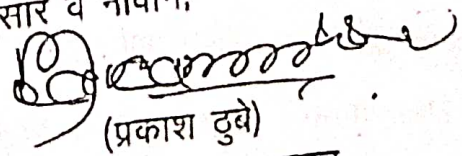 सार व नावाने,
(प्रकाश ठुबे)